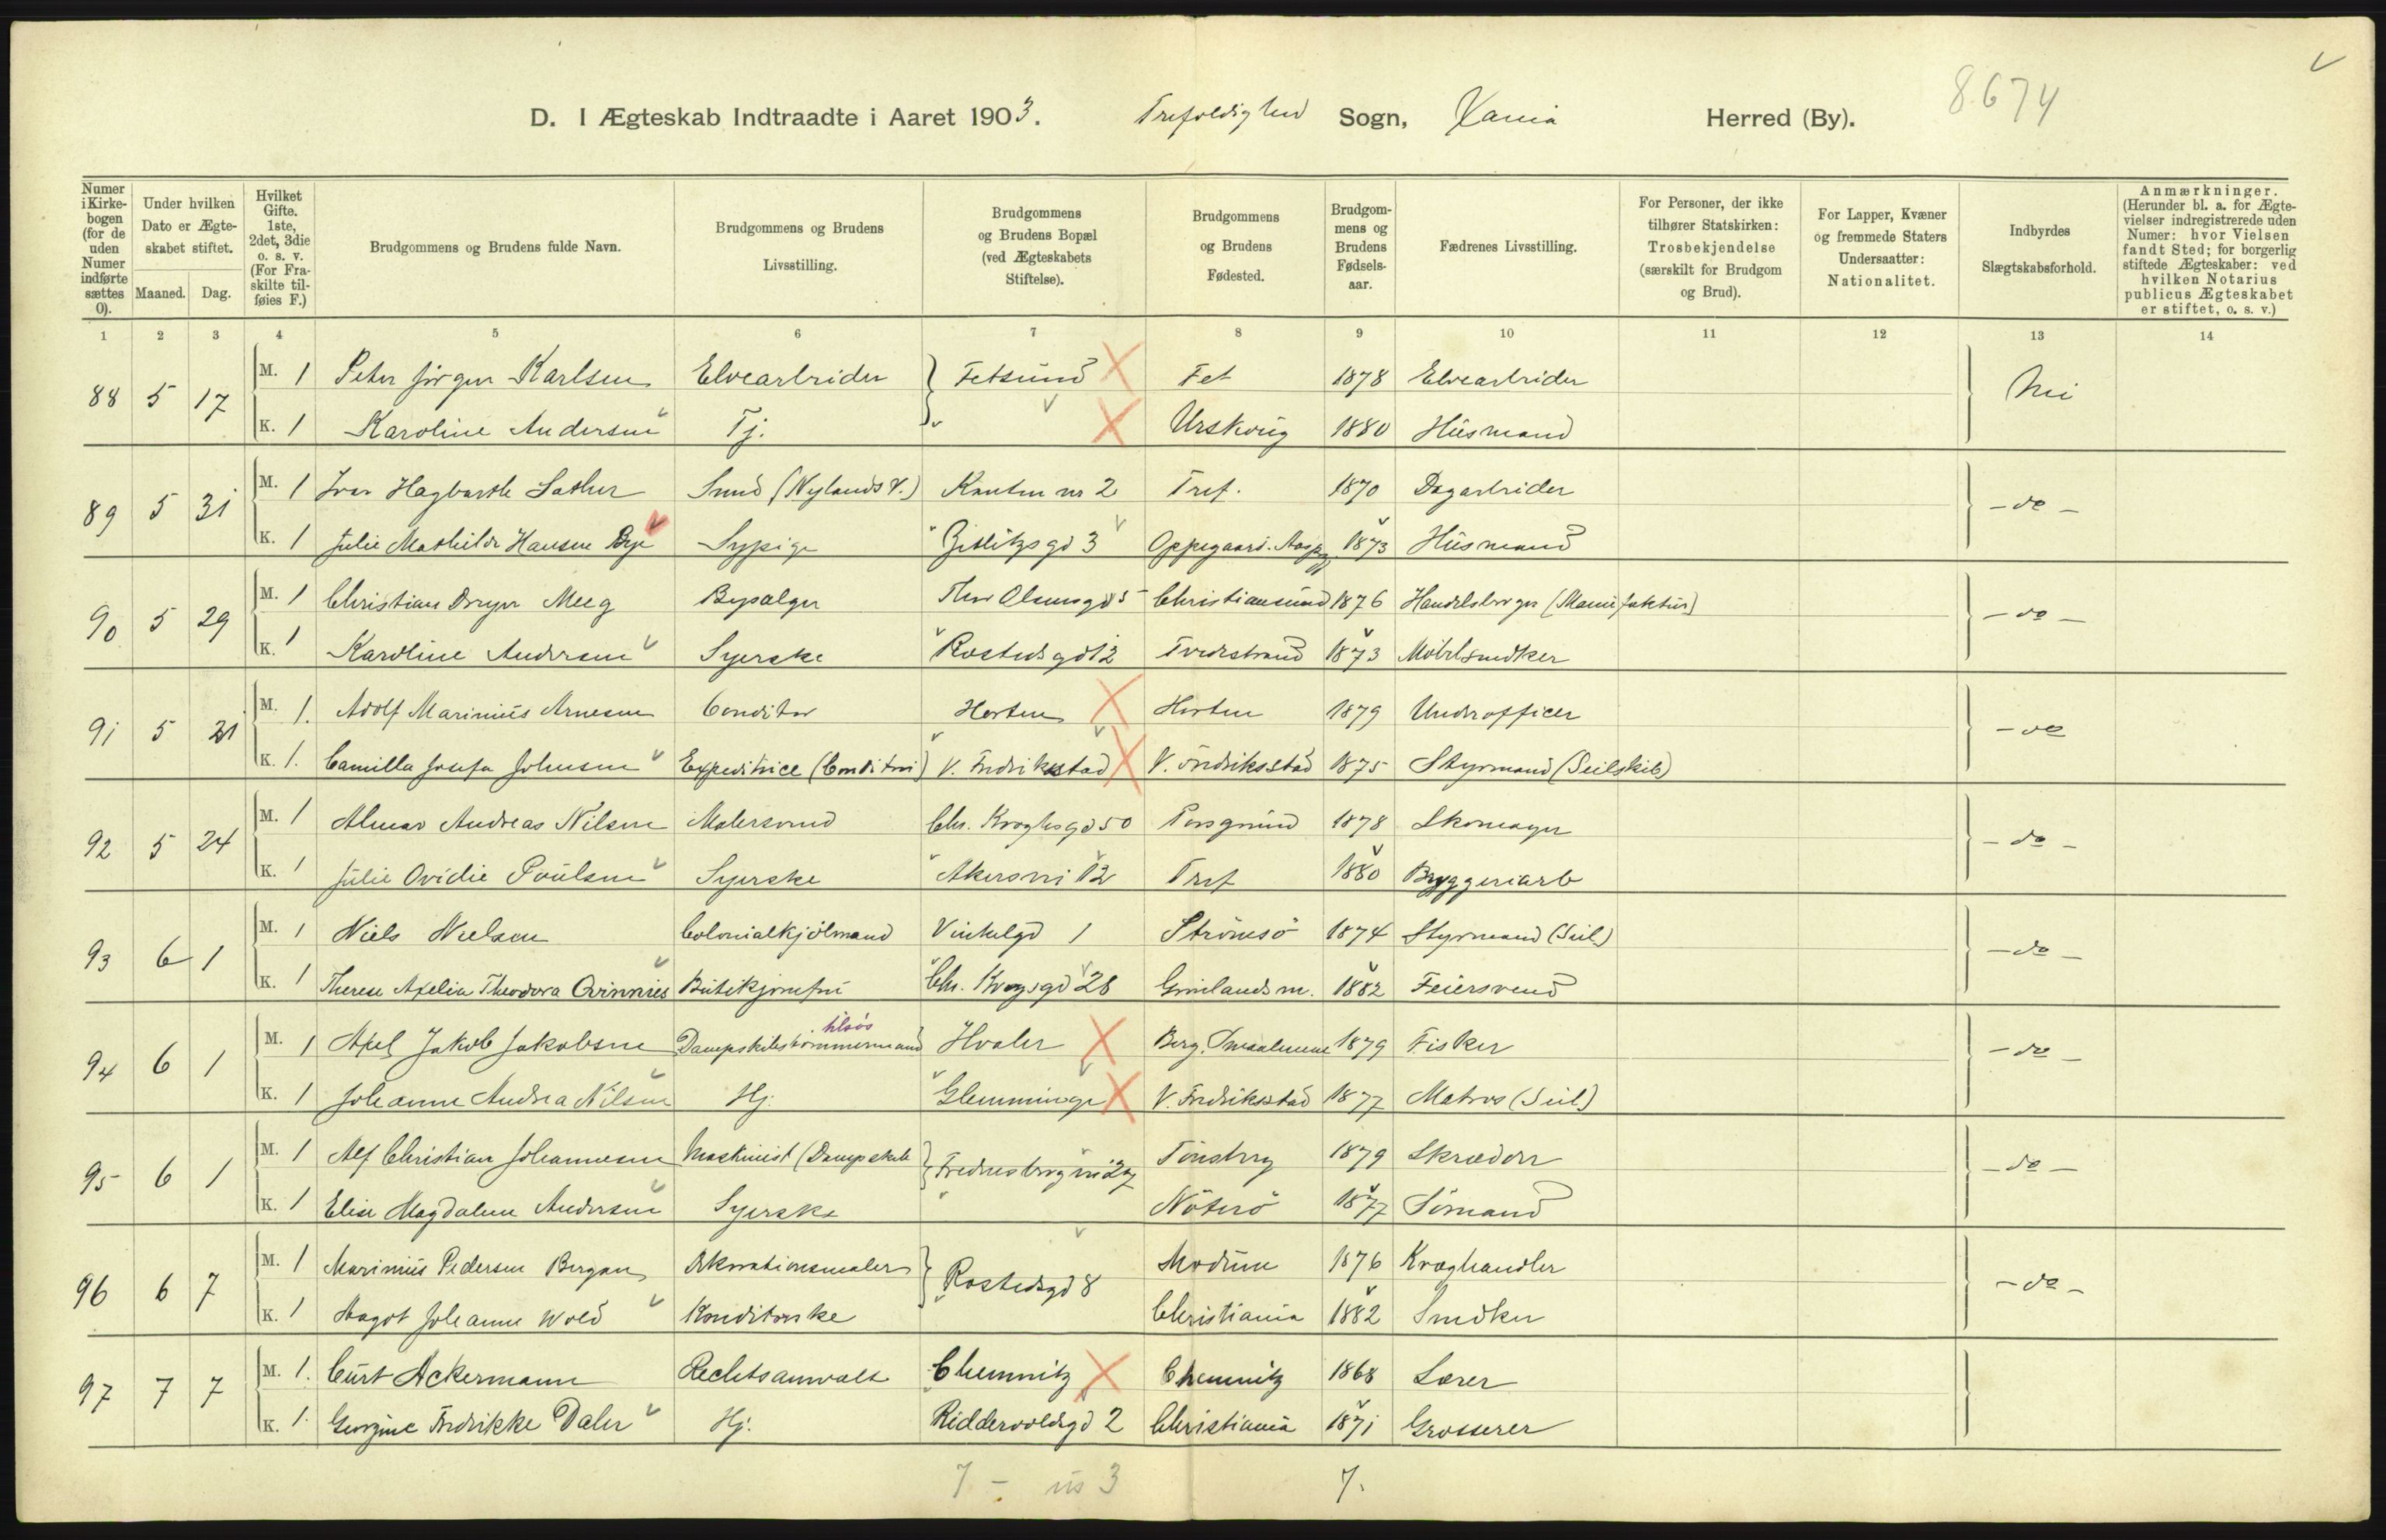 8.674
D. I Ægteskab Indtraadte i Aaret 1903. Trefoldighed Sogn, Xania Herred (By).
Numer i Kirkebogen (for de uden Numer indførte sættes 0).
Under hvilken Dato er Ægteskabet stiftet.
Maaned. Dag.
Hvilket Gifte. 1ste, 2det, 3die o. s. v. (For Fraskilte tilføies F.)
Brudgommens og Brudens fulde Navn.
Brudgommens og Brudens Livsstilling.
Brudgommens og Brudens Bopæl (ved Ægteskabets Stiftelse).
Brudgommens og Brudens Fødested.
Brudgommens og Brudens Fødselsaar.
Fædrenes Livsstilling.
For Personer, der ikke tilhører Statskirken: Trosbekjendelse (særskilt for Brudgom og Brud).
For Lapper, Kvæner og fremmede Staters Undersaatter: Nationalitet.
Indbyrdes Slægtskabsforhold.
Anmærkninger. (Herunder bl. a. for Ægtevielser indregistrerede uden Numer: hvor Vielsen fandt Sted; for borgerlig stiftede Ægteskaber: ved hvilken Notarius publicus Ægteskabet er stiftet, o. s. v.)
1 2 3 4 5 6 7 8 9 10 11 12 13 14
88 5 17 M. 1 Peter Jørgen Karlsen Elvearbeider Fetsund Fet 1878 Elvearbeider Nei
K. 1 Karoline Andersen Tj. Urskoug 1880 Husmand
89 5 31 M. 1 Ivar Hagbarth Sather Smed (Nylands V.) Kanten nr 2 Tref. 1870 Dagarbeider - do -
K. 1 Julie Mathilde Hansen Bye Sypige Zetlitzgd 3 Oppegaard. 1873 Husmand
90 5 29 M. 1 Christian Dreyer Meeg Bysælger Thor Olsensgd 5 Christiansund 1876 Handelsborger (Manufaktur) - do -
K. 1 Karoline Andersen Syerske Rostedsgd 12 Tvedestrand 1873 Møbelsnedker
91 5 21 M. 1. Adolf Marinius Arnesen Conditor Horten Horten 1879 Underofficer - do
K. 1. Camilla Josefa Johnsen Expeditrice (Conditori) V. Fredriksstad V. Fredriksstad 1875 Styrmand (Seilskib)
92 5 24 M. 1 Almar Andreas Nilsen Malersvend Chr. Kroghsgd 50 Porsgrund 1878 Skomager - do -
K. 1 Julie Ovidie Poulsen Syerske Akersvei 12 Tref 1880 Bryggeriarb
93 6 1 M. 1 Niels Nielsen Colonialkjølmand Vinkelgd 1 Strømsø 1874 Styrmand (Seil) - do -
K. 1 Therese Axelia Theodora Qvinnies Butikjomfru Chr. Krogsgd 28 1882 Feiersvend
94 6 1 M. 1 Axel Jakob Jakobsen Dampskibstømmermand tilsøs Hvaler Berg, Smaalenene 1879 Fisker - do -
K. 1 Johanne Andrea Nilsen Hj. Glemminge V. Fredriksstad 1877 Matros (Seil)
95 6 1 M. 1 Alf Christian Johannesen Maskinist (Dampskib Fredensborgvei 27 Tønsberg 1879 Skrædder - do -
K. 1 Elise Magdalene Andersen Syerske Nøterø 1877 Sømand
96 6 7 M. 1 Marinius Pedersen Bergan Dekorationsmaler Rostedsgd 8 Modum 1876 Kræghandler - do -
K. 1 Magot Johanne Wold Konditorske Christiania 1882 Snedker
97 7 7 M. 1. Curt Ackermann Rechtsanwalt Chemnitz Chemnitz 1868 Lærer
K. 1. Georgine Fredrikke Dahr Hj. Riddervoldsgd 2 Christiania 1871 Grosserer
7 - us 3 7.